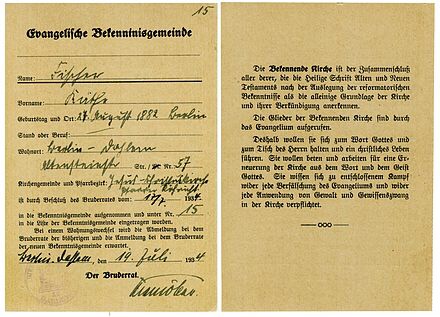 15
Evangelische Bekenntnisgemeinde
Name: Fischer
Vorname: Käthe
Geburtstag und Ort: 27. August 1882 Berlin
Stand oder Beruf:
Wohnort: Berlin-Dahlem
Altensteinstr Str./ Nr. 57
Kirchengemeinde und Pfarrbezirk: Jesus-Christuskirche
Pfarrer
ist durch Beschluß des Bruderrates vom 17/7. 1934
in die Bekenntnisgemeinde aufgenommen und unter Nr. 15
in die Liste der Bekenntnisgemeinde eingetragen worden.
Bei einem Wohnungswechsel wird die Abmeldung bei dem
Bruderrate der bisherigen und die Anmeldung bei dem Bruderrate
der neuen Bekenntnisgemeinde erwartet.
Berlin-Dahlem, den 19. Juli 1934
Der Bruderrat.
Niemöller.
Die Bekennende Kirche ist der Zusammenschluß
aller derer, die die Heilige Schrift Alten und Neuen
Testaments nach der Auslegung der reformatorischen
Bekenntnisse als die alleinige Grundlage der Kirche
und ihrer Verkündigung anerkennen.
Die Glieder der Bekennenden Kirche sind durch
das Evangelium aufgerufen.
Deshalb wollen sie sich zum Wort Gottes und
zum Tisch des Herrn halten und ein christliches Leben
führen. Sie wollen beten und arbeiten für eine Er-
neuerung der Kirche aus dem Wort und dem Geist
Gottes. Sie wissen sich zu entschlossenem Kampf
wider jede Verfälschung des Evangeliums und wider
jede Anwendung von Gewalt und Gewissenszwang
in der Kirche verpflichtet.